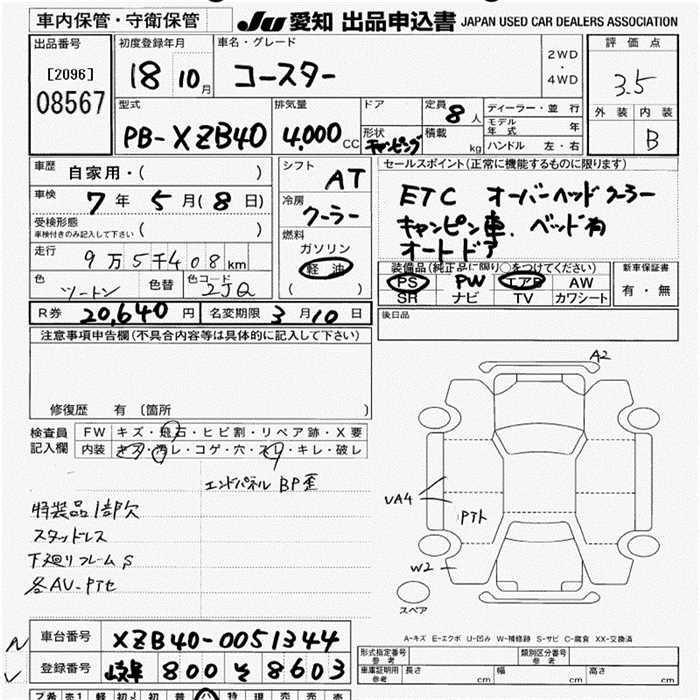 車内保管・守衛保管
JU 愛知 出品申込書 JAPAN USED CAR DEALERS ASSOCIATION
出品番号
[2096]
08567
初度登録年月
18 10月
車名・グレード
コースター
2WD
・
4WD
評価点
3.5
外装 内装
B
型式
PB-XZB40
排気量
4,000cc
ドア
形状
キャンピング
定員
8人
積載
kg
ディーラー・並行
モデル年式 年
ハンドル 左・右
車歴
自家用・( )
車検
7年 5月(8日)
受検形態
車検付きのみ記入して下さい ( )
走行
9万5千408km
色
ツートン
色替
色コード
2JQ
シフト
AT
冷房
クーラー
燃料
ガソリン
軽油
( )
セールスポイント(正常に機能するものに限ります)
ETC オーバーヘッドクーラー
キャンピン車.ベッド有
オートドア
装備品(純正品に限り○をつけてください)
PS PW エアB AW
SR ナビ TV カワシート
新車保証書
有・無
R券 20,640円 名変期限 3月10日
後日品
注意事項申告欄(不具合内容等は具体的に記入して下さい)
修復歴 有 [箇所 ]
検査員
記入欄
FW キズ・飛石・ヒビ割・リペア跡・X要
内装 キズ・汚レ・コゲ・穴・スレ・キレ・破レ
エンドパネル BP歪
特装品1部欠
スタッドレス
下廻りフレームS
各AU-PTセ
A2
UA4
PTト
W2
スペア
A-キズ E-エクボ U-凹ミ W-補修跡 S-サビ C-腐食 XX-交換済
車台番号 XZB40-0051344
登録番号 岐阜 800 そ 8603
形式指定番号
参考
類別区分番号
参考
車庫証明用
参考
長さ cm 幅 cm 高さ cm